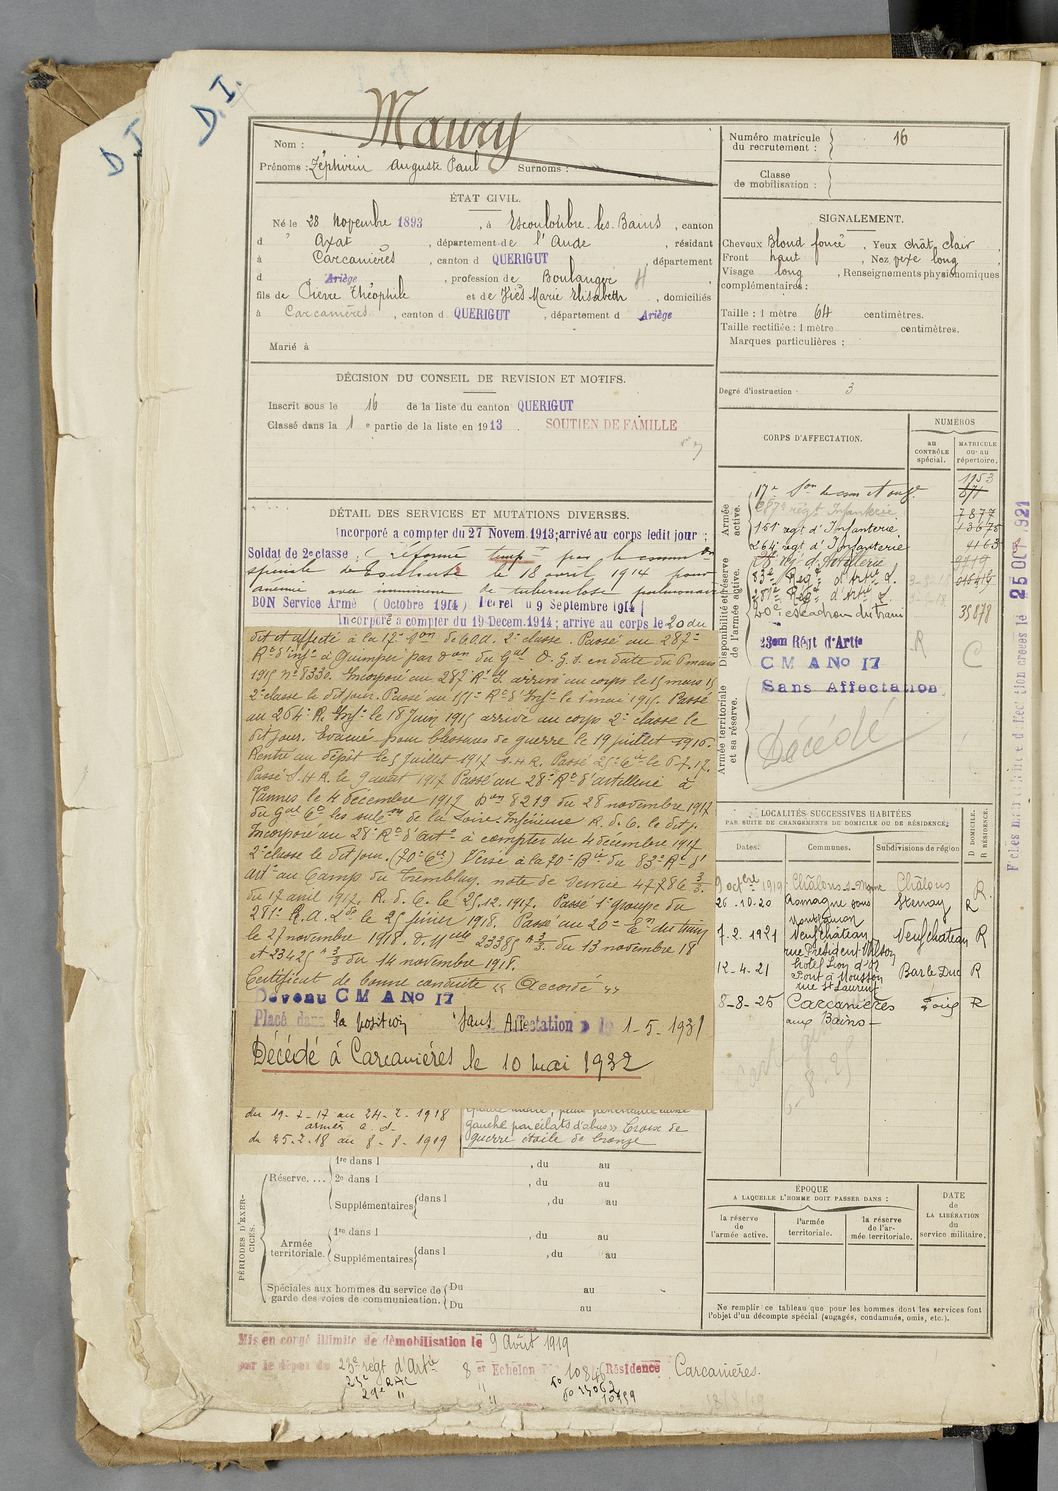 D.I.
D I
Maury
Nom :
Prénoms : Zéphirin Auguste Paul Surnoms :
Numéro matricule du recrutement : 16
Classe de mobilisation :
ÉTAT CIVIL.
Né le 28 Novembre 1893, à Escouloubre-les-Bains, canton
d Axat, département de l'Aude, résidant
à Carcanières, canton d QUERIGUT, département
d Ariège, profession de Boulanger
fils de Pierre Théophile et de Viès Marie Elisabeth, domiciliés
à Carcanières, canton d QUERIGUT, département d Ariège
Marié à
SIGNALEMENT.
Cheveux Blond foncé, Yeux chât. clair,
Front haut, Nez long
Visage long, Renseignements physionomiques
complémentaires :
Taille : 1 mètre 64 centimètres.
Taille rectifiée : 1 mètre centimètres.
Marques particulières :
Degré d'instruction : 3
DÉCISION DU CONSEIL DE REVISION ET MOTIFS.
Inscrit sous le n° 16 de la liste du canton QUERIGUT
Classé dans la 1 e partie de la liste en 1913. SOUTIEN DE FAMILLE
DÉTAIL DES SERVICES ET MUTATIONS DIVERSES.
Incorporé a compter du 27 Novem. 1913; arrivé au corps ledit jour ;
Soldat de 2e classe ; réformé temp re par la comm on
spéciale de Toulouse le 18 avril 1914 pour
anémie avec imminence de tuberculose pulmonaire
BON Service Armé (Octobre 1914) Décret du 9 Septembre 1914
Incorporé a compter du 19 Decem. 1914 ; arrive au corps le 20 du
dit et affecté à la 17e Son de C.O.A. 2e classe. Passé au 287e
Rt d'Infie à Quimper par Don du Gal D.G.S. en date du 6 mars
1915 N° 8330. Incorporé au 287 R. I. arrivé au corps le 15 mars 15
2e classe le dit jour. Passé au 151e Rt d'Infie le 1 mai 1915. Passé
au 264e R. Infie le 18 Juin 1915 arrivé au corps 2e classe le
dit jour. Evacué pour blessures de guerre le 19 juillet 1916.
Rentré au dépôt le 5 juillet 1917 S.H.R. Passé 25e Cie le 6.7.17.
Passé S.H.R. le 9 août 1917 Passé au 28e Rt d'artillerie à
Vannes le 4 décembre 1917 Don 8219 du 28 novembre 1917
du Gal Ct les subon de la Loire-Inférieure R. d. C. le dit j.
Incorporé au 28e Rt d'Artie à compter du 4 décembre 1917
2e classe le dit jour. (70e Cie) Versé à la 70e Bie du 83e Rt d'
Artie au Camp du Tremblay. note de service 47786 3/3.
du 17 avril 1917. R. d. C. le 25.12.1917. Passé 1er groupe du
281e R.A. Lde le 25 février 1918. Passé au 20e En du train
le 27 novembre 1918. D. Melle 23385 3/3 du 13 novembre 18
et 23425 3/3 du 14 novembre 1918.
Certificat de bonne conduite "Accordé"
Devenu C M A No 17
Placé dans la position "Sans Affectation" le 1-5-1931
Décédé à Carcanières le 10 mai 1932
du 19-2-17 au 24-2-1918
armée e. d.
du 25.2.18 au 8-8-1919
gauche par éclats d'obus" Croix de
guerre étoile de bronze
CORPS D'AFFECTATION.
NUMÉROS
au CONTRÔLE spécial.
MATRICULE ou au répertoire.
Armée active.
17e Son de com et ouv. 1953
871
287e régt Infanterie 7877
151e régt d'Infanterie 13675
264e régt d'Infanterie 4163
28e rég. d'Artillerie 9119
83e Régt d'Artie L.
281e Régt d'Artie L.
20e escadron du train 35878
Disponibilité et réserve de l'armée active.
23em Régt d'Artie R C
C M A No 17
Sans Affectation
Armée territoriale et sa réserve.
Décédé
Fiches 25 OCT 1921
LOCALITÉS SUCCESSIVES HABITÉES
PAR SUITE DE CHANGEMENTS DE DOMICILE OU DE RÉSIDENCE.
Dates. Communes. Subdivisions de région D DOMICILE. R RÉSIDENCE.
9 octbre 1919 Châlons-s-Marne Châlons R.
26-10-20 Romagne sous Montfaucon Stenay R
7-2-1921 Neufchâteau Neufchâteau R
rue Président Wilson
hôtel Lion d'or
12-4-21 Pont à Mousson Bar le Duc R
rue St Laurent
8-8-25 Carcanières Foix R
aux Bains
PÉRIODES D'EXERCICES.
Réserve.... 1re dans l , du au
2e dans l , du au
Supplémentaires dans l , du au
Armée territoriale. 1re dans l , du au
Supplémentaires dans l , du au
Spéciales aux hommes du service de garde des voies de communication. Du au
Du au
ÉPOQUE
A LAQUELLE L'HOMME DOIT PASSER DANS :
la réserve de l'armée active.
l'armée territoriale.
la réserve de l'armée territoriale.
DATE de LA LIBÉRATION du service militaire.
Ne remplir ce tableau que pour les hommes dont les services font
l'objet d'un décompte spécial (engagés, condamnés, omis, etc.).
Mis en congé illimité de démobilisation le 9 Août 1919
par le dépôt du 23e régt d'Artie 8e Echelon N° 10846 Résidence Carcanières.
23e RAC
29e "